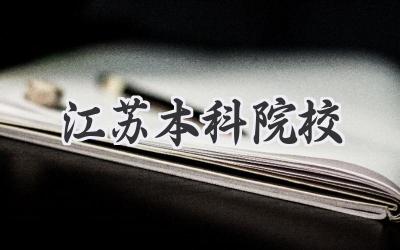 江苏本科院校